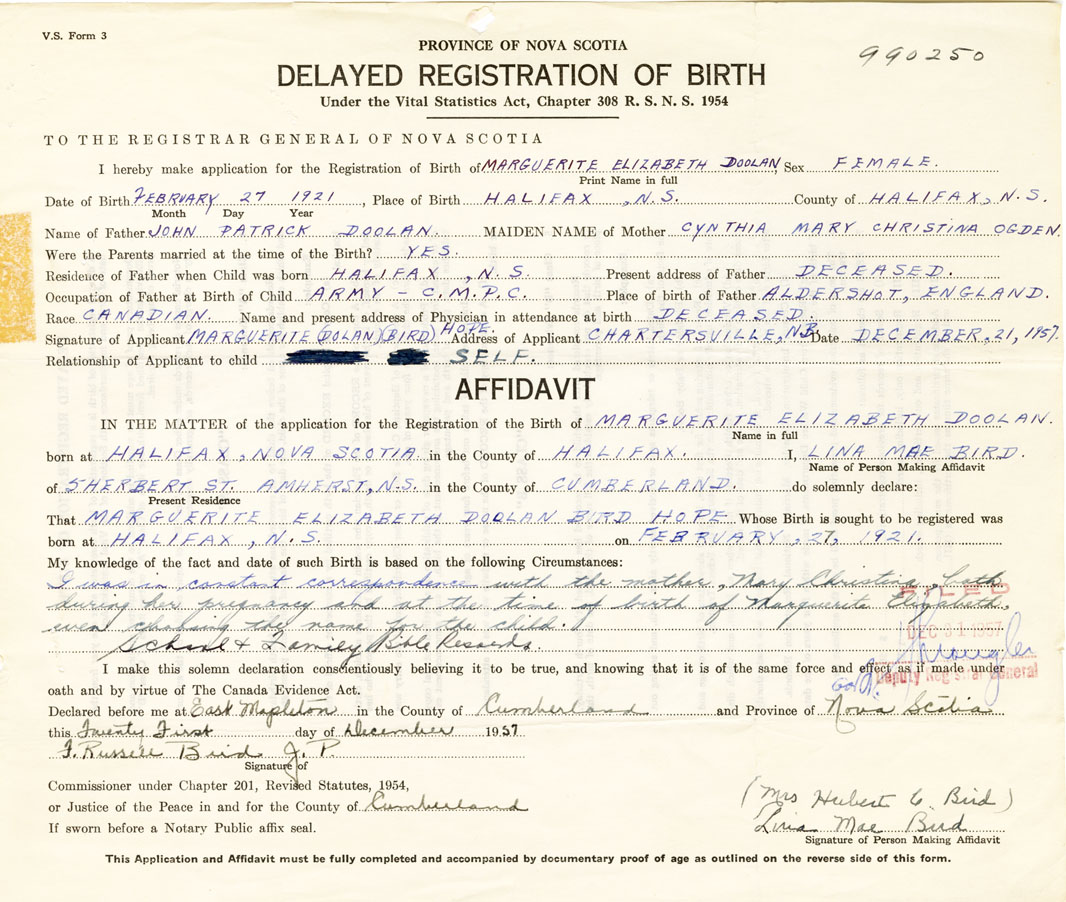 V.S. Form 3
990250
PROVINCE OF NOVA SCOTIA
DELAYED REGISTRATION OF BIRTH
Under the Vital Statistics Act, Chapter 308 R. S. N. S. 1954
TO THE REGISTRAR GENERAL OF NOVA SCOTIA
I hereby make application for the Registration of Birth of MARGUERITE ELIZABETH DOOLAN, Sex FEMALE.
Print Name in full
Date of Birth FEBRUARY 27 1921, Place of Birth HALIFAX, N.S. County of HALIFAX, N.S.
Month Day Year
Name of Father JOHN PATRICK DOOLAN. MAIDEN NAME of Mother CYNTHIA MARY CHRISTINA OGDEN.
Were the Parents married at the time of the Birth? YES.
Residence of Father when Child was born HALIFAX, N.S. Present address of Father DECEASED.
Occupation of Father at Birth of Child ARMY - C.M.P.C. Place of birth of Father ALDERSHOT, ENGLAND.
Race CANADIAN. Name and present address of Physician in attendance at birth DECEASED.
Signature of Applicant MARGUERITE (DOLAN)(BIRD) HOPE. Address of Applicant CHARTERSVILLE, N.B. Date DECEMBER, 21, 1957.
Relationship of Applicant to child SELF.
AFFIDAVIT
IN THE MATTER of the application for the Registration of the Birth of MARGUERITE ELIZABETH DOOLAN.
Name in full
born at HALIFAX, NOVA SCOTIA in the County of HALIFAX. I, LINA MAE BIRD.
Name of Person Making Affidavit
of SHERBERT ST. AMHERST, N.S. in the County of CUMBERLAND. do solemnly declare:
Present Residence
That MARGUERITE ELIZABETH DOOLAN BIRD HOPE Whose Birth is sought to be registered was
born at HALIFAX, N.S. on FEBRUARY, 27, 1921.
My knowledge of the fact and date of such Birth is based on the following Circumstances:
I was in constant correspondence with the mother, Mary Christina, both
during her pregnancy and at the time of birth of Marguerite Elizabeth,
even choosing the name for the child.
School & Family Bible Records.
FILED
DEC 31 1957
Deputy Registrar General
I make this solemn declaration conscientiously believing it to be true, and knowing that it is of the same force and effect as if made under
oath and by virtue of The Canada Evidence Act.
Declared before me at East Mapleton in the County of Cumberland and Province of Nova Scotia
this Twenty First day of December 1957
F. Russell Bird J. P.
Signature of
Commissioner under Chapter 201, Revised Statutes, 1954,
or Justice of the Peace in and for the County of Cumberland
If sworn before a Notary Public affix seal.
(Mrs Hubert C. Bird)
Lina Mae Bird
Signature of Person Making Affidavit
This Application and Affidavit must be fully completed and accompanied by documentary proof of age as outlined on the reverse side of this form.